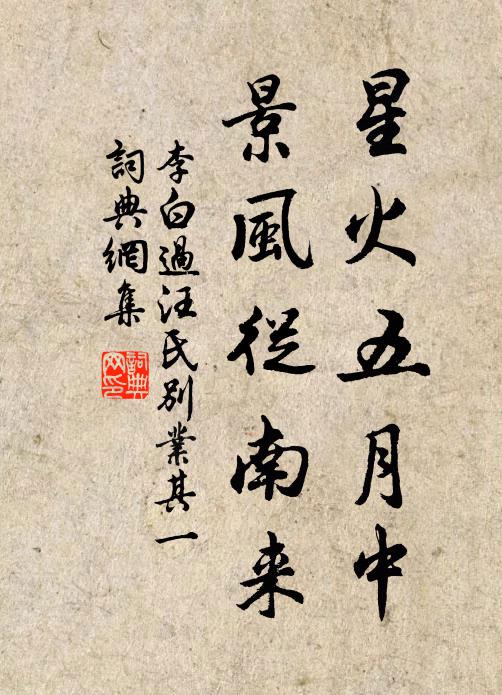 星火五月中
景風從南来
李白過汪氏別業其一
詞典網集
詞典网印